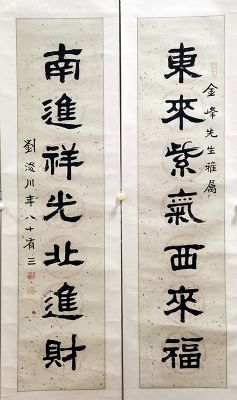 東來紫氣西來福
金峰先生雅屬
南進祥光北進財
劉浚川年八十有三